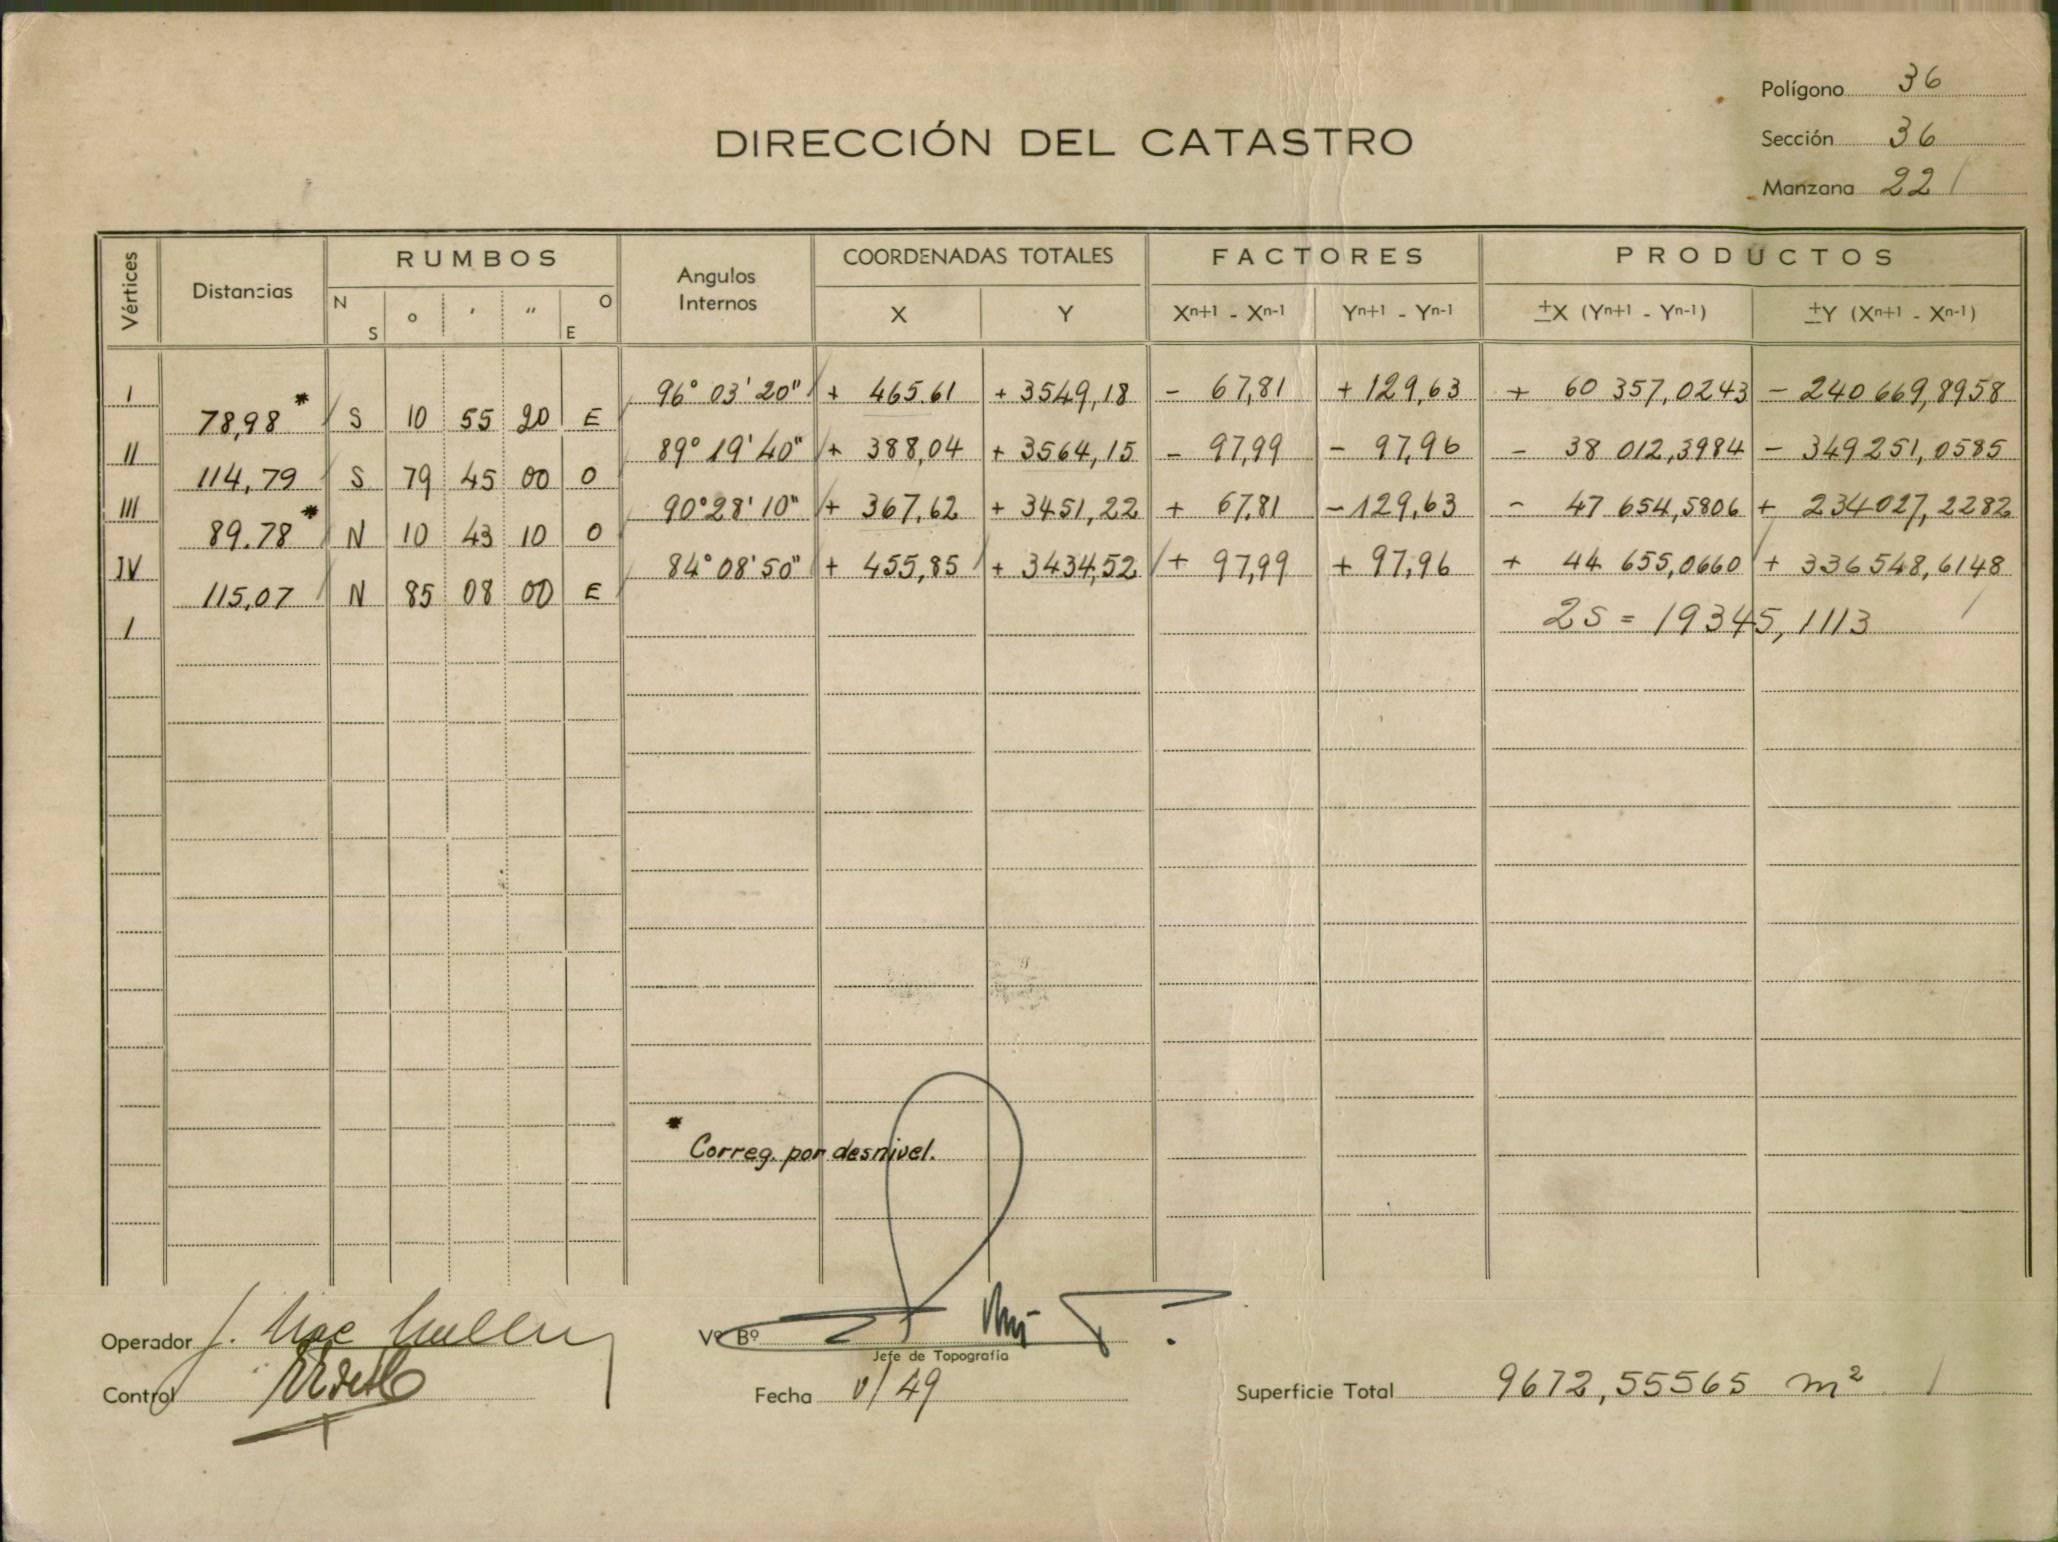 Polígono 36
DIRECCIÓN DEL CATASTRO
Sección 36
Manzana 221
Vértices Distancias RUMBOS Angulos Internos COORDENADAS TOTALES FACTORES PRODUCTOS
N S ° ' " O E X Y Xn+1 - Xn-1 Yn+1 - Yn-1 ±X (Yn+1 - Yn-1) ±Y (Xn+1 - Xn-1)
I 96° 03' 20" + 465.61 + 3549,18 - 67,81 + 129,63 + 60 357,0243 - 240 669,8958
78,98 * S 10 55 20 E
II 89° 19' 40" + 388,04 + 3564,15 - 97,99 - 97,96 - 38 012,3984 - 349 251,0585
114,79 S 79 45 00 O
III 90° 28' 10" + 367,62 + 3451,22 + 67,81 - 129,63 - 47 654,5806 + 234 027,2282
89.78 * N 10 43 10 O
IV 84° 08' 50" + 455,85 + 3434,52 + 97,99 + 97,96 + 44 655,0660 + 336 548,6148
115,07 N 85 08 00 E
I 2S = 19345,1113
* Correg. por desnivel.
Operador J. Mac
Vº Bº
Jefe de Topografía
Control
Fecha V/49
Superficie Total 9672,55565 m²